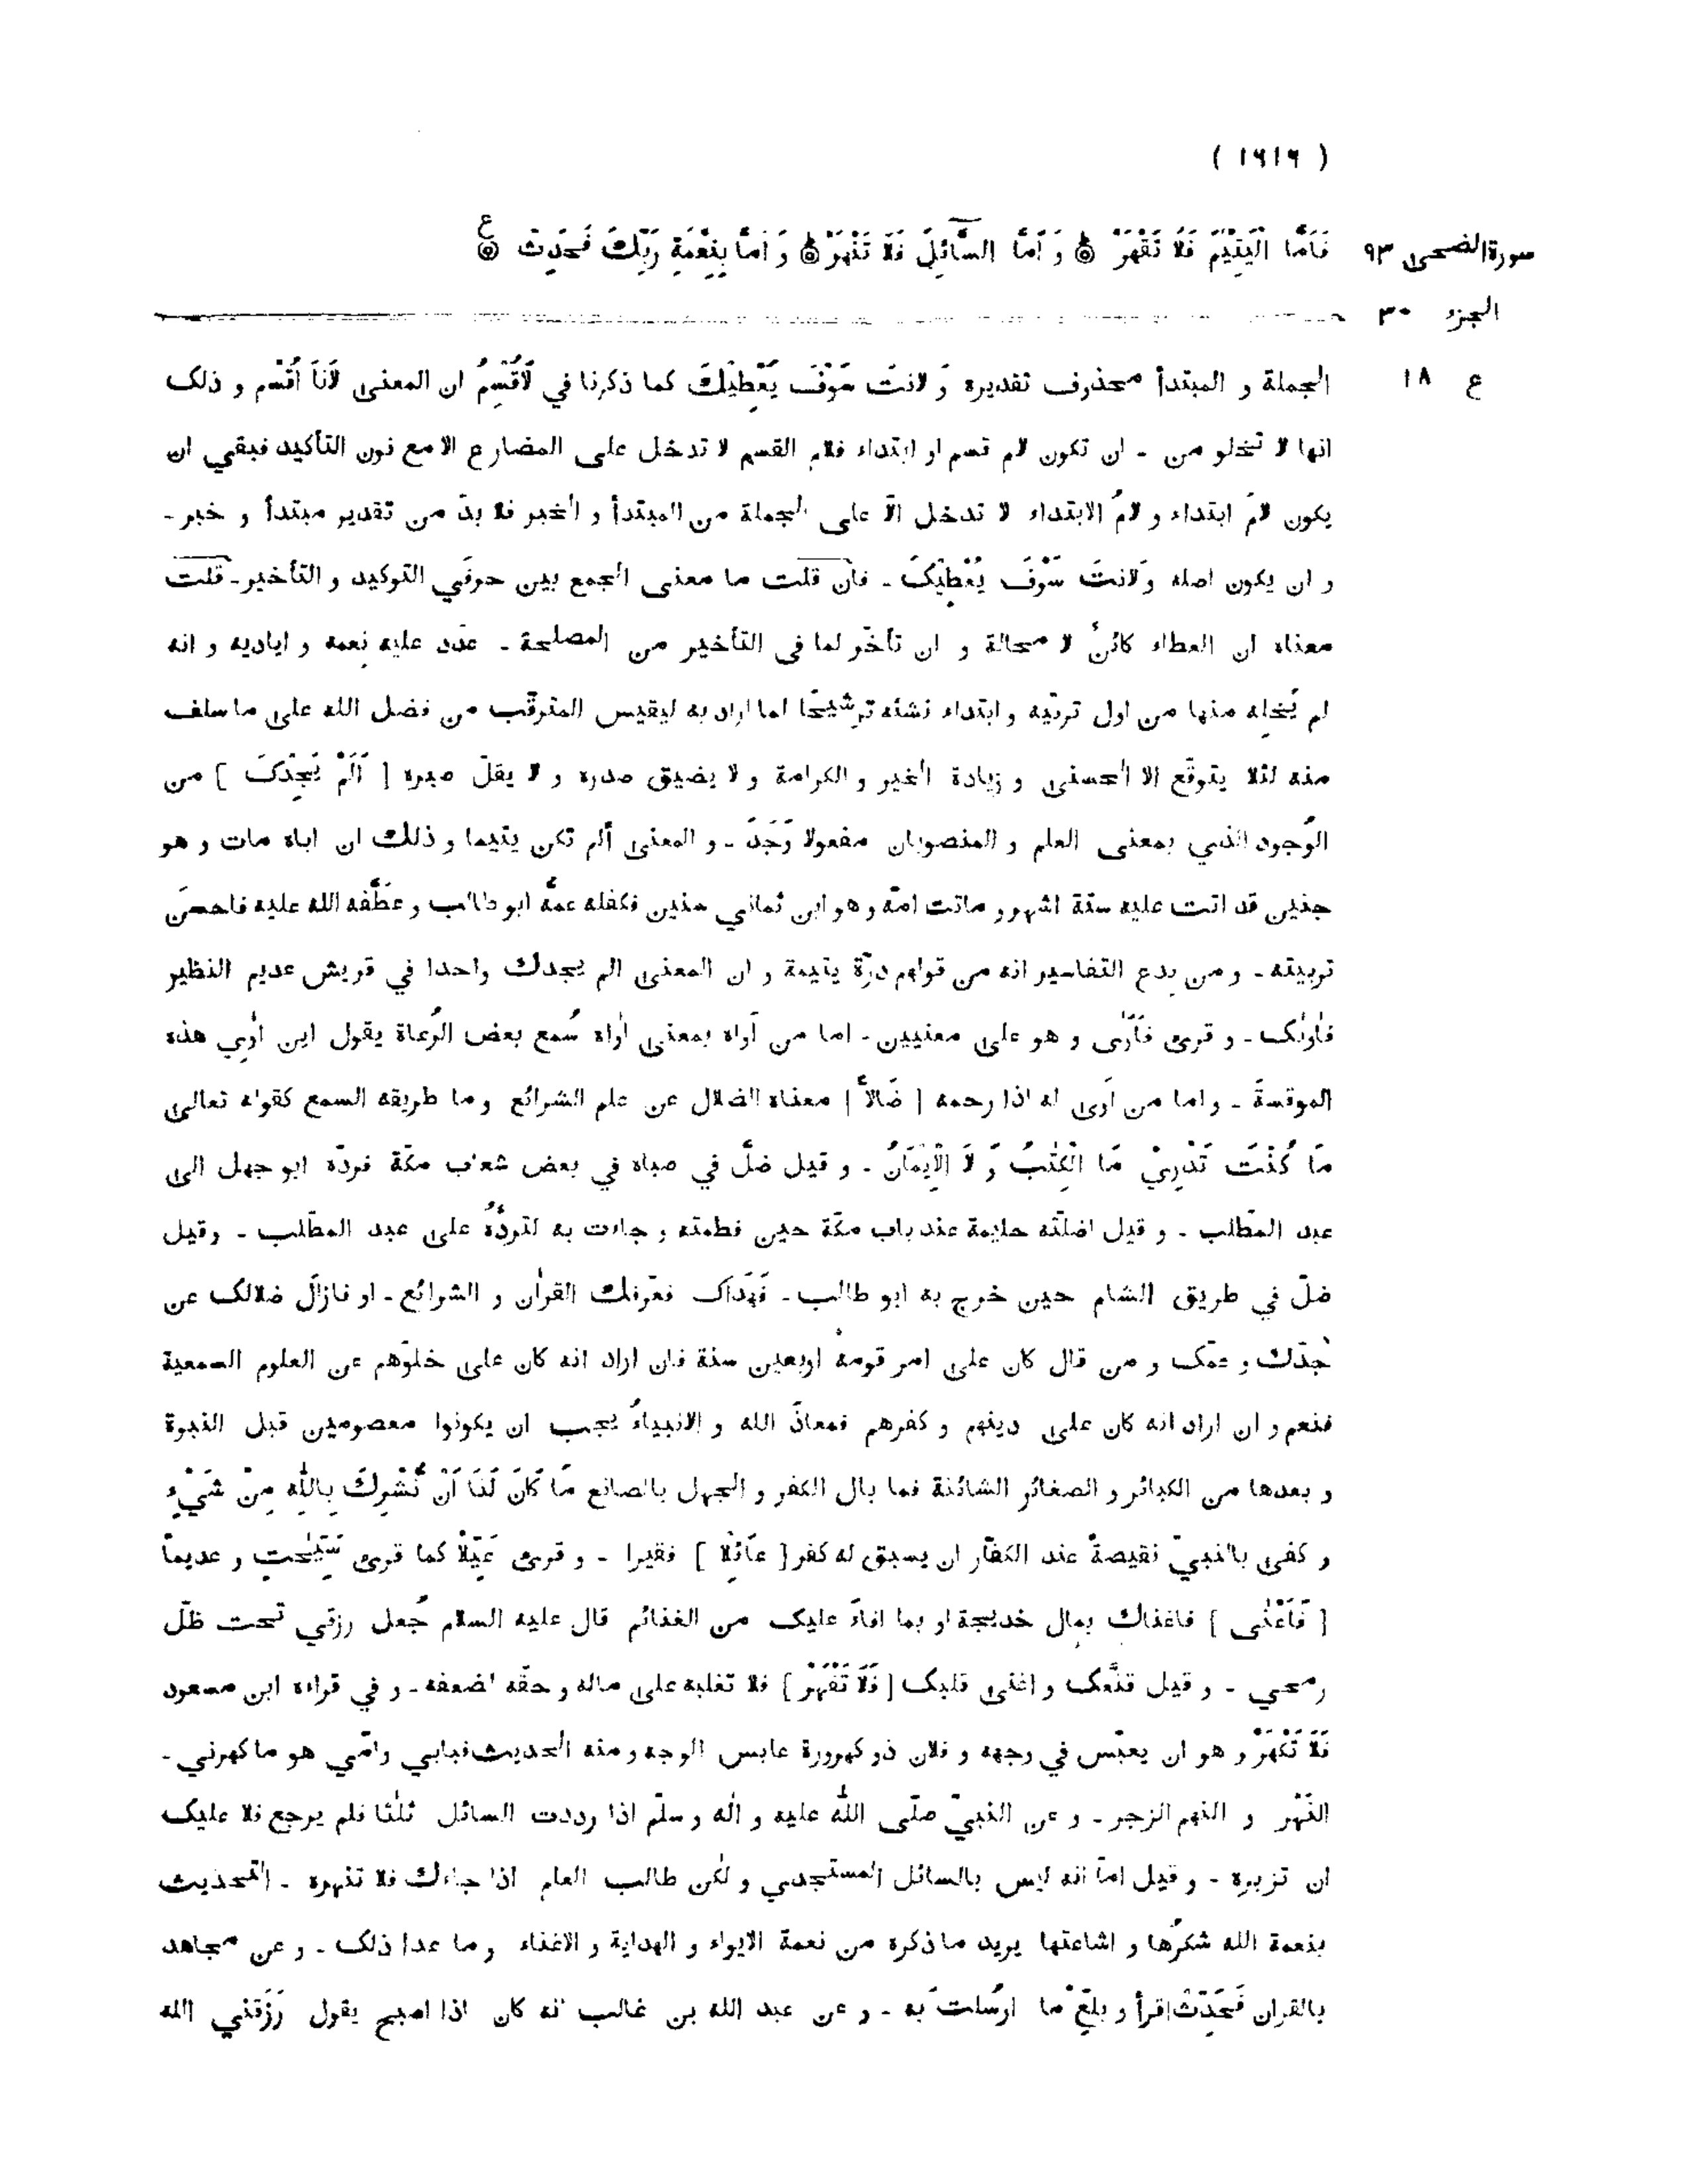 ( ١٦١٦ )
سورة الضحى ٩٣
فَاَمَّا الْيَتِيْمَ فَلَا تَقْهَرْ ۞ وَ اَمَّا السَّآئِلَ فَلَا تَنْهَرْ ۞ وَ اَمَّا بِنِعْمَةِ رَبِّكَ فَحَدِّثْ ۞ ع
الجزء ٣٠
ع ١٨
الجملة و المبتدأ محذوف تقديره وَ لانتَ سَوْفَ يُعْطِيْكَ كما ذكرنا في لَاُقْسِمُ ان المعنى لَأنَا اُقْسم و ذلک
انها لا تخلو من - ان تكون لام قسم او ابتداء فلام القسم لا تدخل على المضارع الا مع نون التأكيد فبقي ان
يكون لامَ ابتداء و لامُ الابتداء لا تدخل الّا على الجملة من المبتدأ و الخبر فلا بدّ من تقدير مبتدأ و خبر -
و ان يكون اصله وَلانتَ سَوْفَ يُعْطِيْکَ - فان قلت ما معنى الجمع بين حرفَي التوكيد و التأخير - قلت
معناه ان العطاء كائنٌ لا محالة و ان تأخّر لما فى التأخير من المصلحة - عدّد عليه نعمه و اياديه و انه
لم يُخله منها من اول تربّيه و ابتداء نشئه ترشيحًا لما اراد به ليقيس المترقّب من فضل الله على ما سلف
منه لئلا يتوقّع الا الحسنى و زيادة الخير و الكرامة و لا يضيق صدره و لا يقلّ صبره [ اَلَمْ يَجِدْكَ ] من
الوُجود الذي بمعنى العلم و المنصوبان مفعولا وَجَدَ - و المعنى ألم تكن يتيما و ذلك ان اباه مات و هو
جنين قد اتت عليه ستة اشهر و ماتت امّه و هو ابن ثماني سنين فكفله عمُّه ابو طالب و عطّفه الله عليه فاحسنَ
تربيته - و من بدع التفاسير انه من قولهم درّة يتيمة و ان المعنى الم يجدك واحدا في قريش عديم النظير
فاٰوٰىک - و قرئ فَأَوٰى و هو على معنيين - اما من أواه بمعنى اٰواه سُمع بعض الرُعاة يقول اين اٰوي هذه
الموقسةَ - و اما من أوى له اذا رحمه [ ضَالًّا ] معناه الضلال عن علم الشرائع و ما طريقه السمع كقوله تعالى
مَا كُنْتَ تَدْرِيْ مَا الْكِتٰبُ وَ لَا الْاِيْمَانُ - و قيل ضلَّ في صباه في بعض شعاب مكّة فردّه ابو جهل الى
عبد المطّلب - و قيل اضلّته حليمة عند باب مكّة حين فطمته و جاءت به لتردّهُ على عبد المطّلب - وقيل
ضلّ في طريق الشام حين خرج به ابو طالب - فَهَدَاک فعرّفك القراٰن و الشرائع - او فازال ضلالک عن
جدّك و عمّک و من قال كان على امر قومه اربعين سنة فان اراد انه كان على خلوّهم عن العلوم السمعية
فنعم و ان اراد انه كان على دينهم و كفرهم فمعاذَ الله و الانبياءُ يجب ان يكونوا معصومين قبل النبوة
و بعدها من الكبائر و الصغائر الشائنة فما بال الكفر و الجهل بالصانع مَا كَانَ لَنَا اَنْ نُّشْرِكَ بِاللّٰهِ مِنْ شَيْءٍ
و كفى بالنبيّ نقيصةً عند الكفّار ان يسبق له كفر [ عَائِلًا ] فقيرا - و قرئ عَيِّلًا كما قرئ سَيِّحٰتٍ و عديماً
[ فَاَغْنٰى ] فاغناك بمال خديجة او بما افاءَ عليک من الغنائم قال عليه السلام جُعل رزقي تحت ظلّ
رمحي - و قيل قنَّعک و اغنى قلبک [ فَلَا تَقْهَرْ ] فلا تغلبه على ماله و حقّه لضعفه - و في قراءة ابن مسعود
فَلَا تَكْهَرْ و هو ان يعبّس في وجهه و فلان ذو كهرورة عابس الوجه و منه الحديث فبابي و امّي هو ما كهرني -
النَهْر و النهم الزجر - و عن النبيّ صلّى اللّٰه عليه و اٰله و سلّم اذا رددت السائل ثلٰثا فلم يرجع فلا عليک
ان تزبره - و قيل اما انه ليس بالسائل المستجدي و لٰكن طالب العلم اذا جاءك فلا تنهره - التحديث
بنعمة الله شكرُها و اشاعتها يريد ما ذكره من نعمة الايواء و الهداية و الاغناء و ما عدا ذلک - و عن مجاهد
بالقران فَحَدِّثْ اقرأ و بلّغ ما ارسلت به - و عن عبد الله بن غالب انه كان اذا اصبح يقول رَزَقني الله